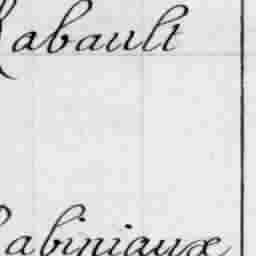 Rabault
Rabiniaux